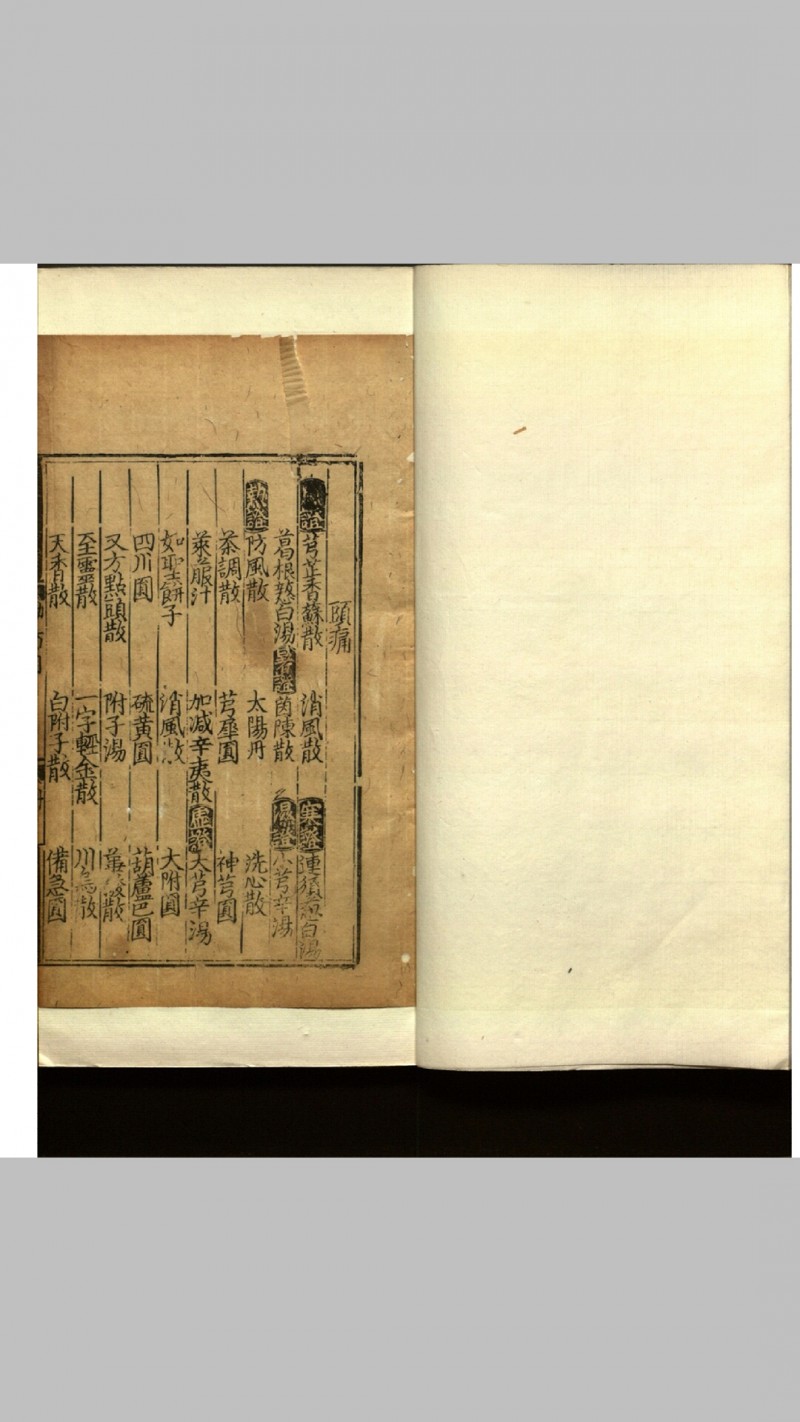 頭痛
證 芎芷香蘇散 消風散 寒證 連鬚葱白湯
葛根葱白湯 暑證 茵陳散 濕證 小芎辛湯
熱證 防風散 太陽丹 洗心散
茶調散 芎犀圓 神芎圓
萊菔汁 加減辛夷散 虛證 大芎辛湯
如聖餅子 消風散 大附圓
四川圓 硫黄圓 葫蘆巴圓
又方點頭散 附子湯 散
至靈散 一字輕金散 川烏散
天香散 白附子散 備急圓